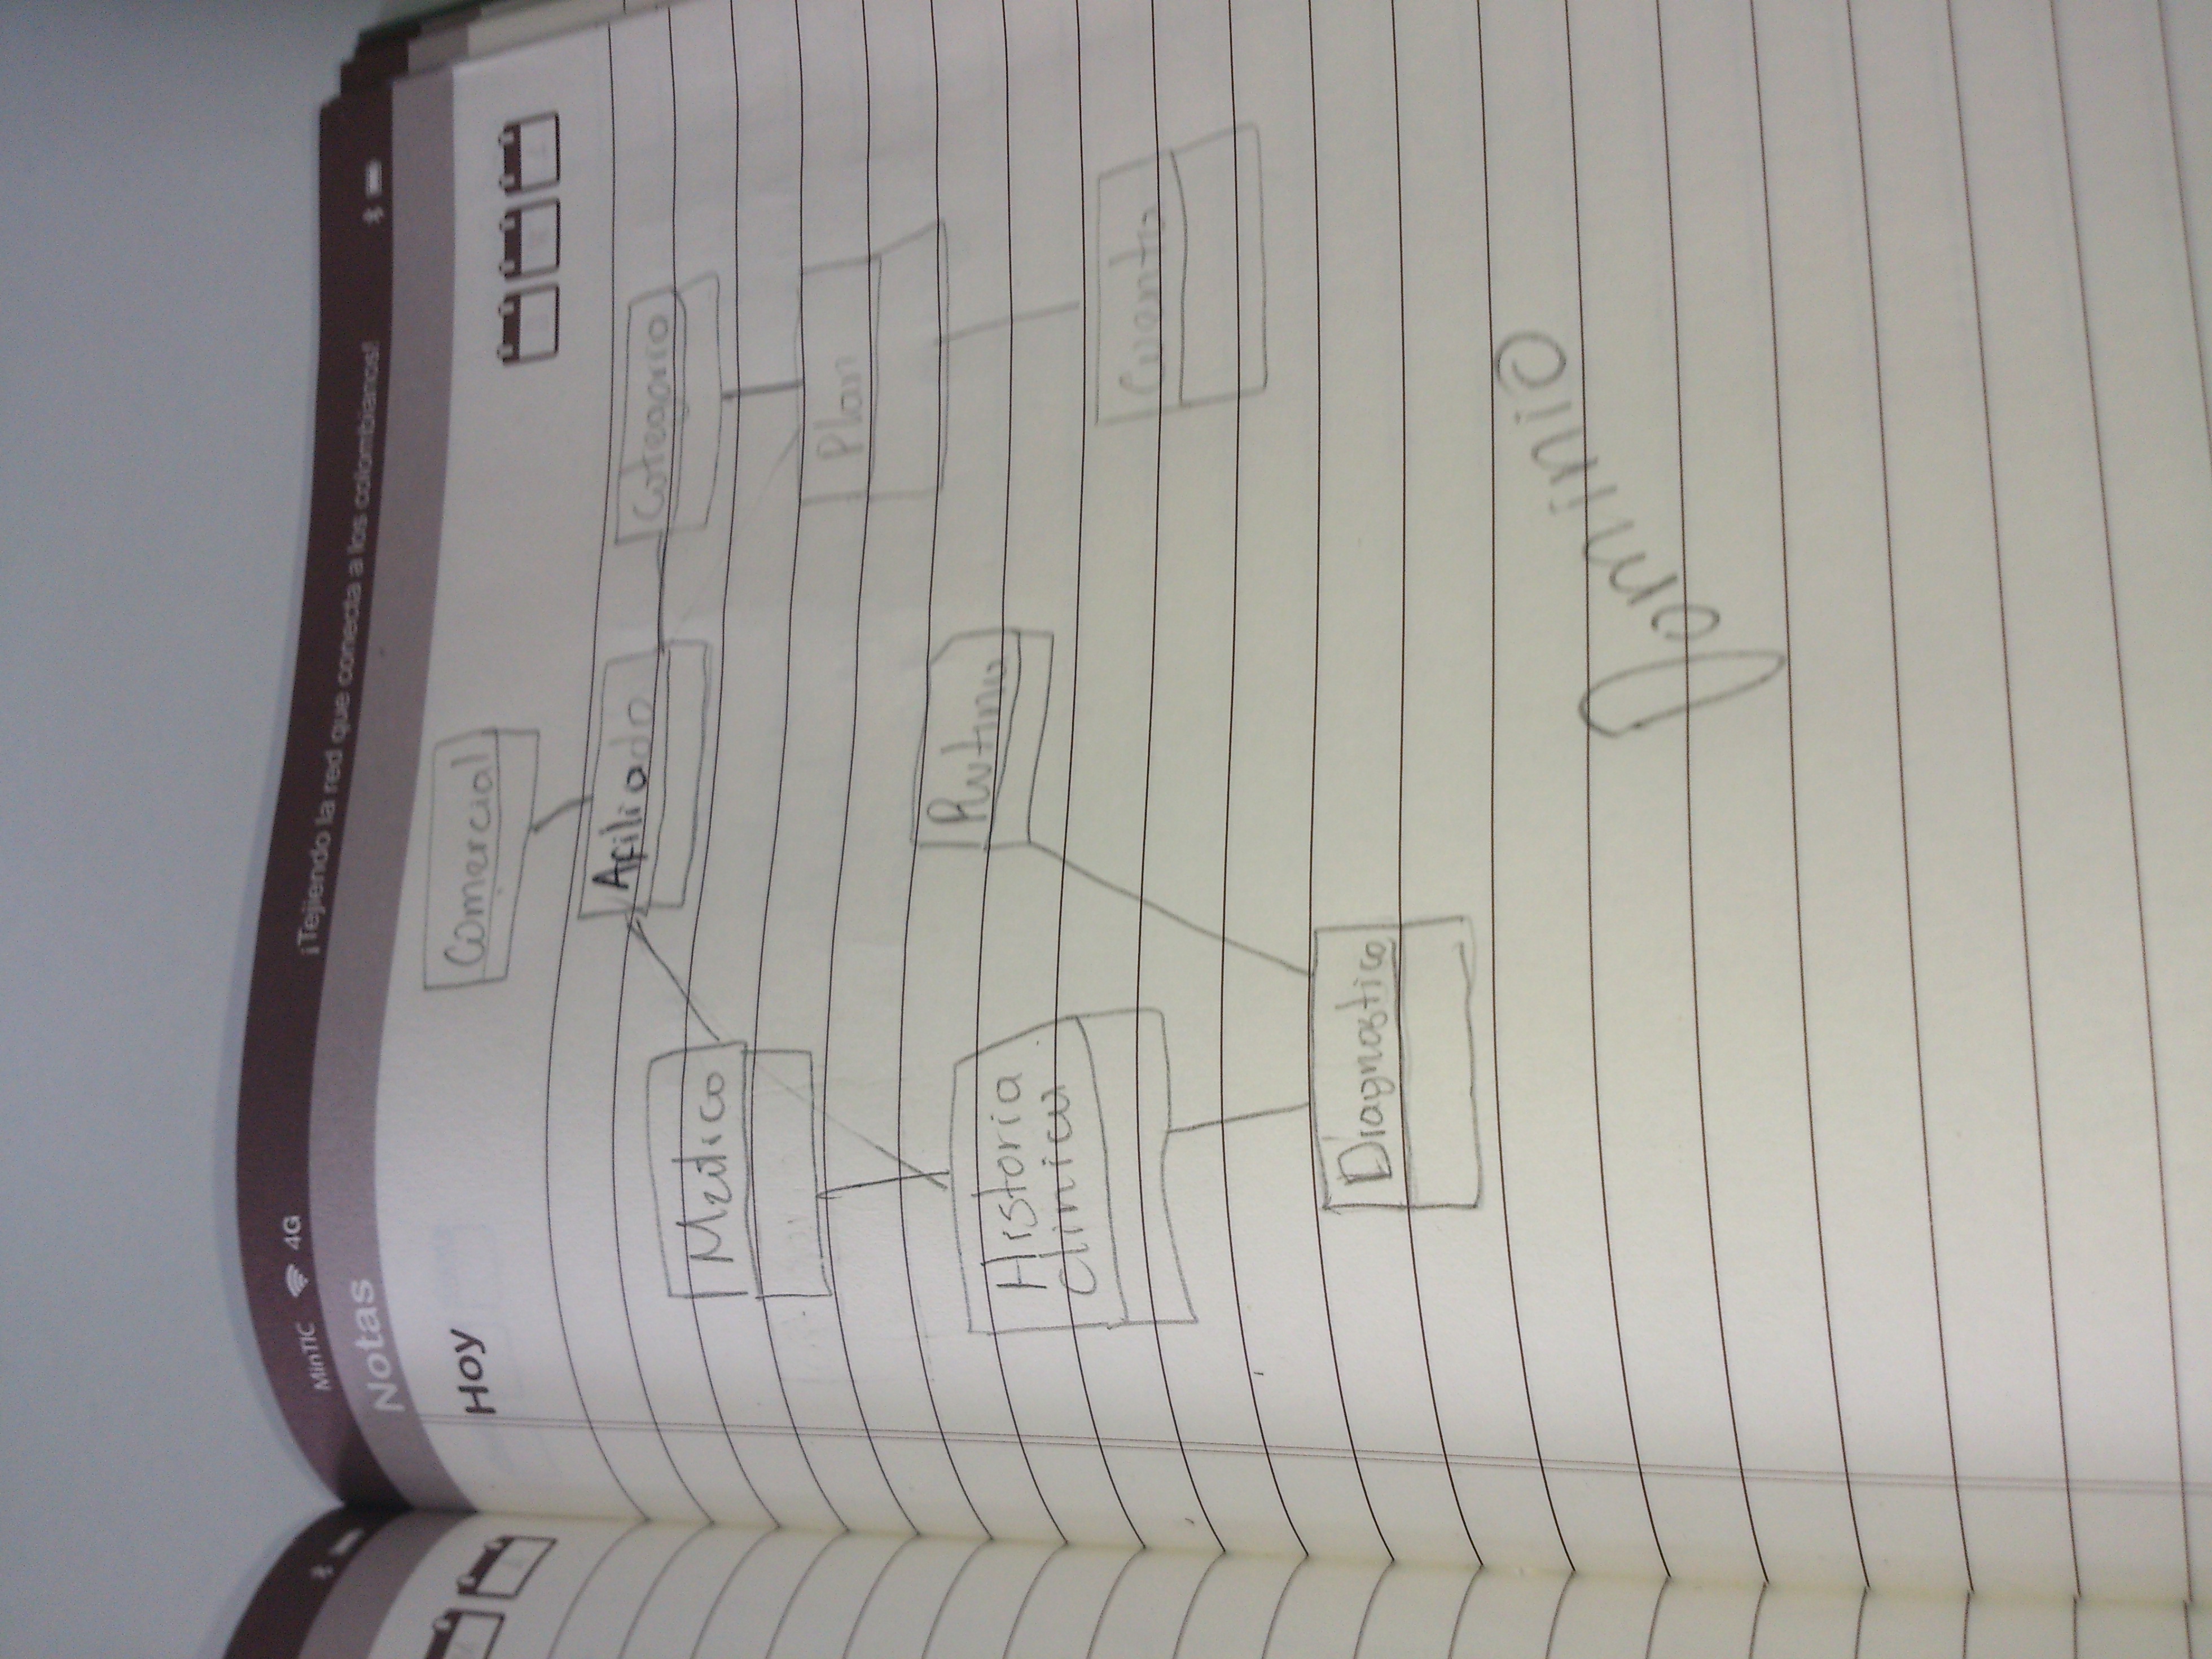 MinTIC 4G ¡Tejiendo la red que conecta a los colombianos!
Notas
Hoy
Comercial
Afiliado
Categoria
Plan
Rutina
Historia
clinica
Cuenta
Diagnostico
Dominio